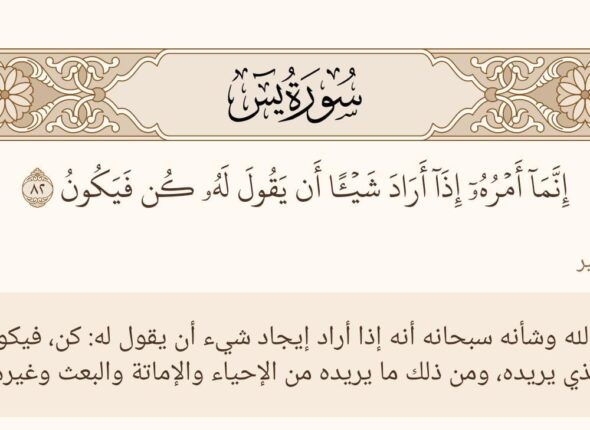 سُورَةُ يسٓ
إِنَّمَآ أَمۡرُهُۥٓ إِذَآ أَرَادَ شَيۡـًٔا أَن يَقُولَ لَهُۥ كُن فَيَكُونُ ٨٢
لله وشأنه سبحانه أنه إذا أراد إيجاد شيء أن يقول له: كن، فيكو
ذي يريده، ومن ذلك ما يريده من الإحياء والإماتة والبعث وغيره